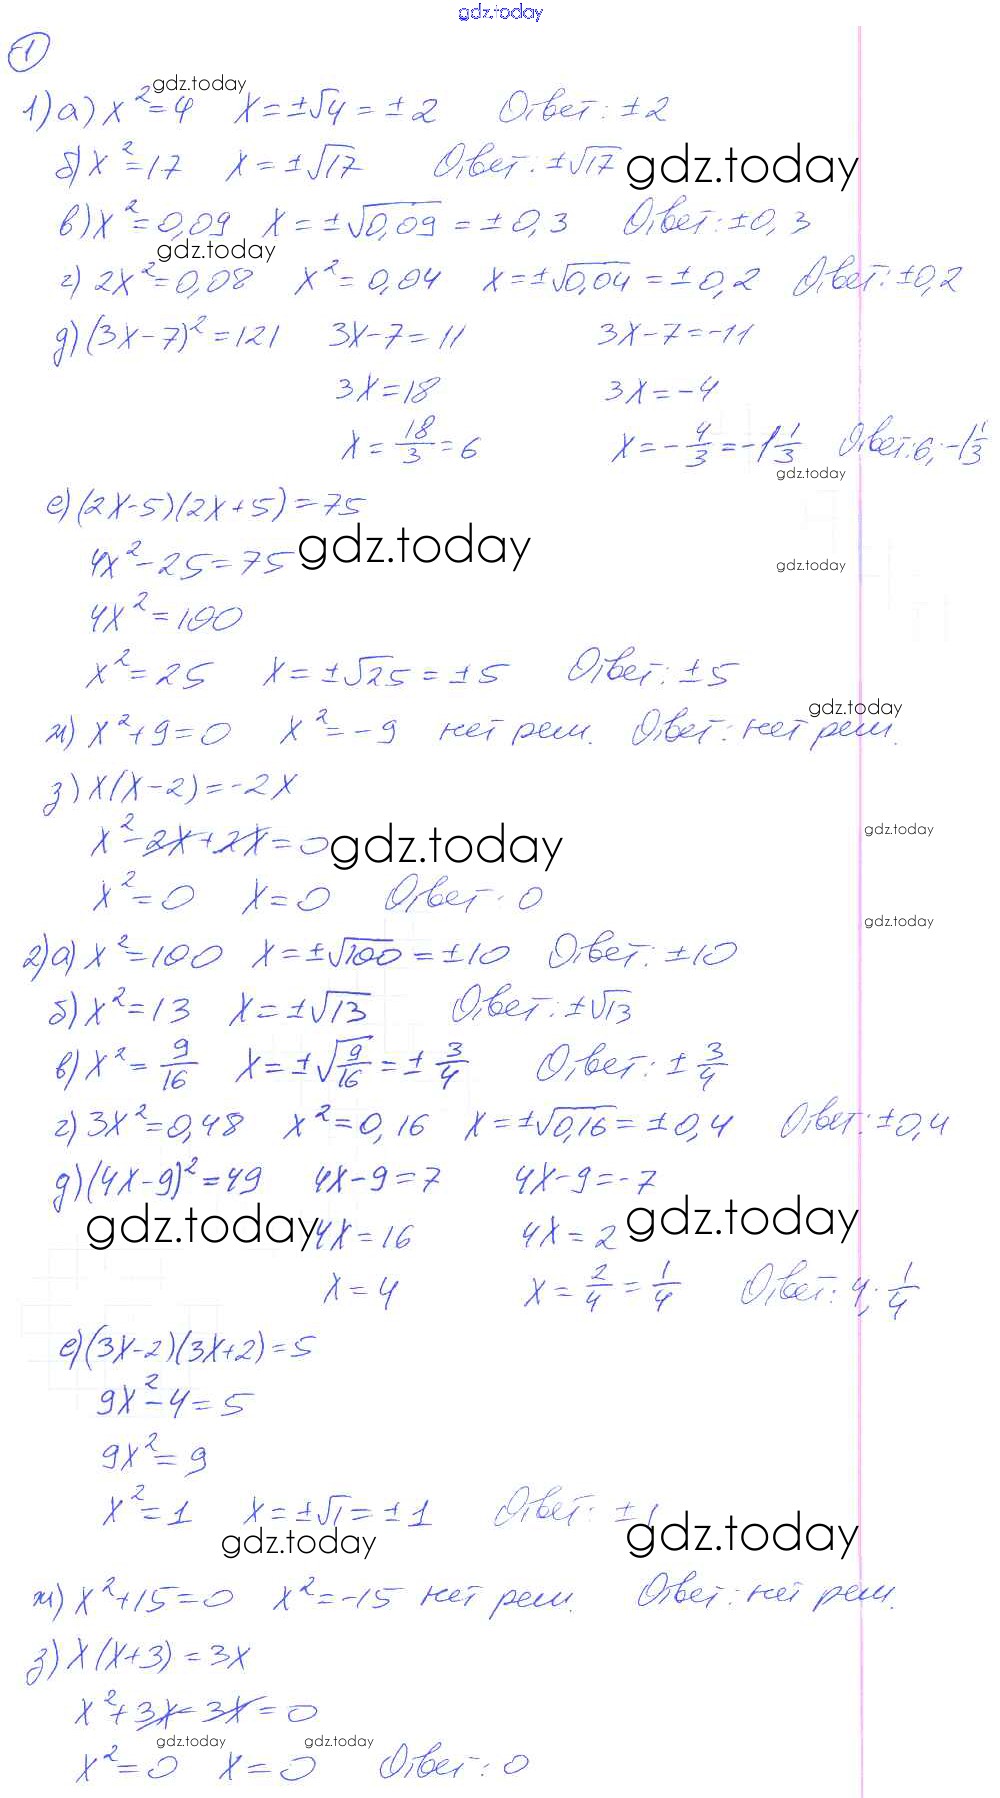 gdz.today
1
gdz.today
1) а) x² = 4 x = ±√4 = ±2 Ответ: ±2
б) x² = 17 x = ±√17 Ответ: ±√17 gdz.today
в) x² = 0,09 x = ±√0,09 = ±0,3 Ответ: ±0,3
gdz.today
г) 2x² = 0,08 x² = 0,04 x = ±√0,04 = ±0,2 Ответ: ±0,2
д) (3x-7)² = 121 3x-7 = 11 3x-7 = -11
3x = 18 3x = -4
x = 18/3 = 6 x = -4/3 = -1 1/3 Ответ: 6; -1 1/3
gdz.today
е) (2x-5)(2x+5) = 75
4x² - 25 = 75 gdz.today
gdz.today
4x² = 100
x² = 25 x = ±√25 = ±5 Ответ: ±5
gdz.today
ж) x² + 9 = 0 x² = -9 нет реш. Ответ: нет реш.
з) x(x-2) = -2x
x² - 2x + 2x = 0 gdz.today
gdz.today
x² = 0 x = 0 Ответ: 0
gdz.today
2) а) x² = 100 x = ±√100 = ±10 Ответ: ±10
б) x² = 13 x = ±√13 Ответ: ±√13
в) x² = 9/16 x = ±√9/16 = ±3/4 Ответ: ±3/4
г) 3x² = 0,48 x² = 0,16 x = ±√0,16 = ±0,4 Ответ: ±0,4
д) (4x-9)² = 49 4x-9 = 7 4x-9 = -7
gdz.today 4x = 16 4x = 2 gdz.today
x = 4 x = 2/4 = 1/4 Ответ: 4; 1/4
е) (3x-2)(3x+2) = 5
9x² - 4 = 5
9x² = 9
x² = 1 x = ±√1 = ±1 Ответ: ±1
gdz.today gdz.today
ж) x² + 15 = 0 x² = -15 нет реш. Ответ: нет реш.
з) x(x+3) = 3x
x² + 3x - 3x = 0
gdz.today gdz.today
x² = 0 x = 0 Ответ: 0